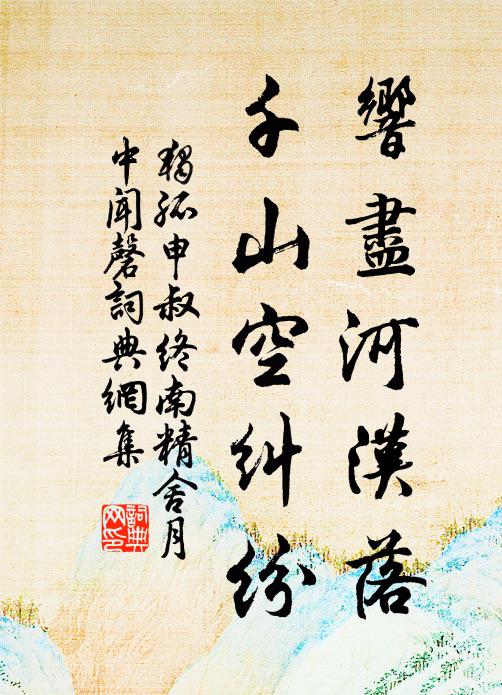 響盡河漢落
千山空糾紛
獨孤申叔終南精舍月
中闻磬詞典網集
詞典
网印